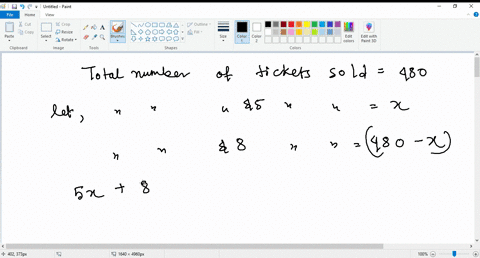 Untitled - Paint
File Home View
Paste Cut Copy Select Crop Resize Rotate Brushes Outline Fill Size Color 1 Color 2 Edit colors Edit with Paint 3D
Clipboard Image Tools Shapes Colors
Total number of tickets sold = 480
let, " " " $5 " " = x
" " $8 " " = (480 - x)
5x + 8
402, 373px 1640 × 4960px 100%